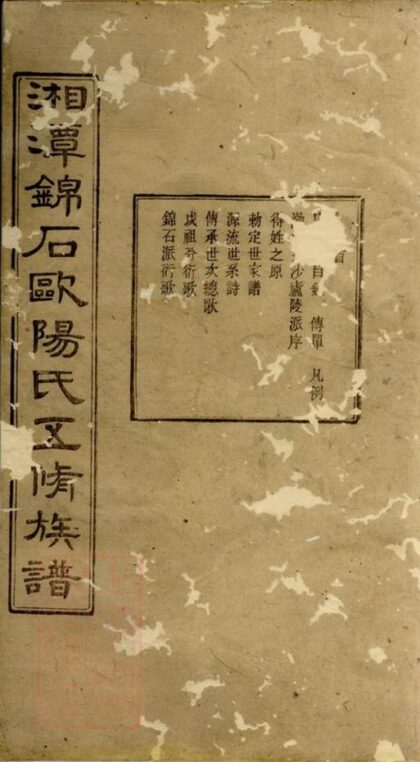 首
自錄 傳單 凡例
沙廬陵派序
得姓之原
勅定世家譜
源流世系詩
傳承世次總歌
戍祖分衍歌
錦石派衍歌
湘潭錦石歐陽氏五脩族譜